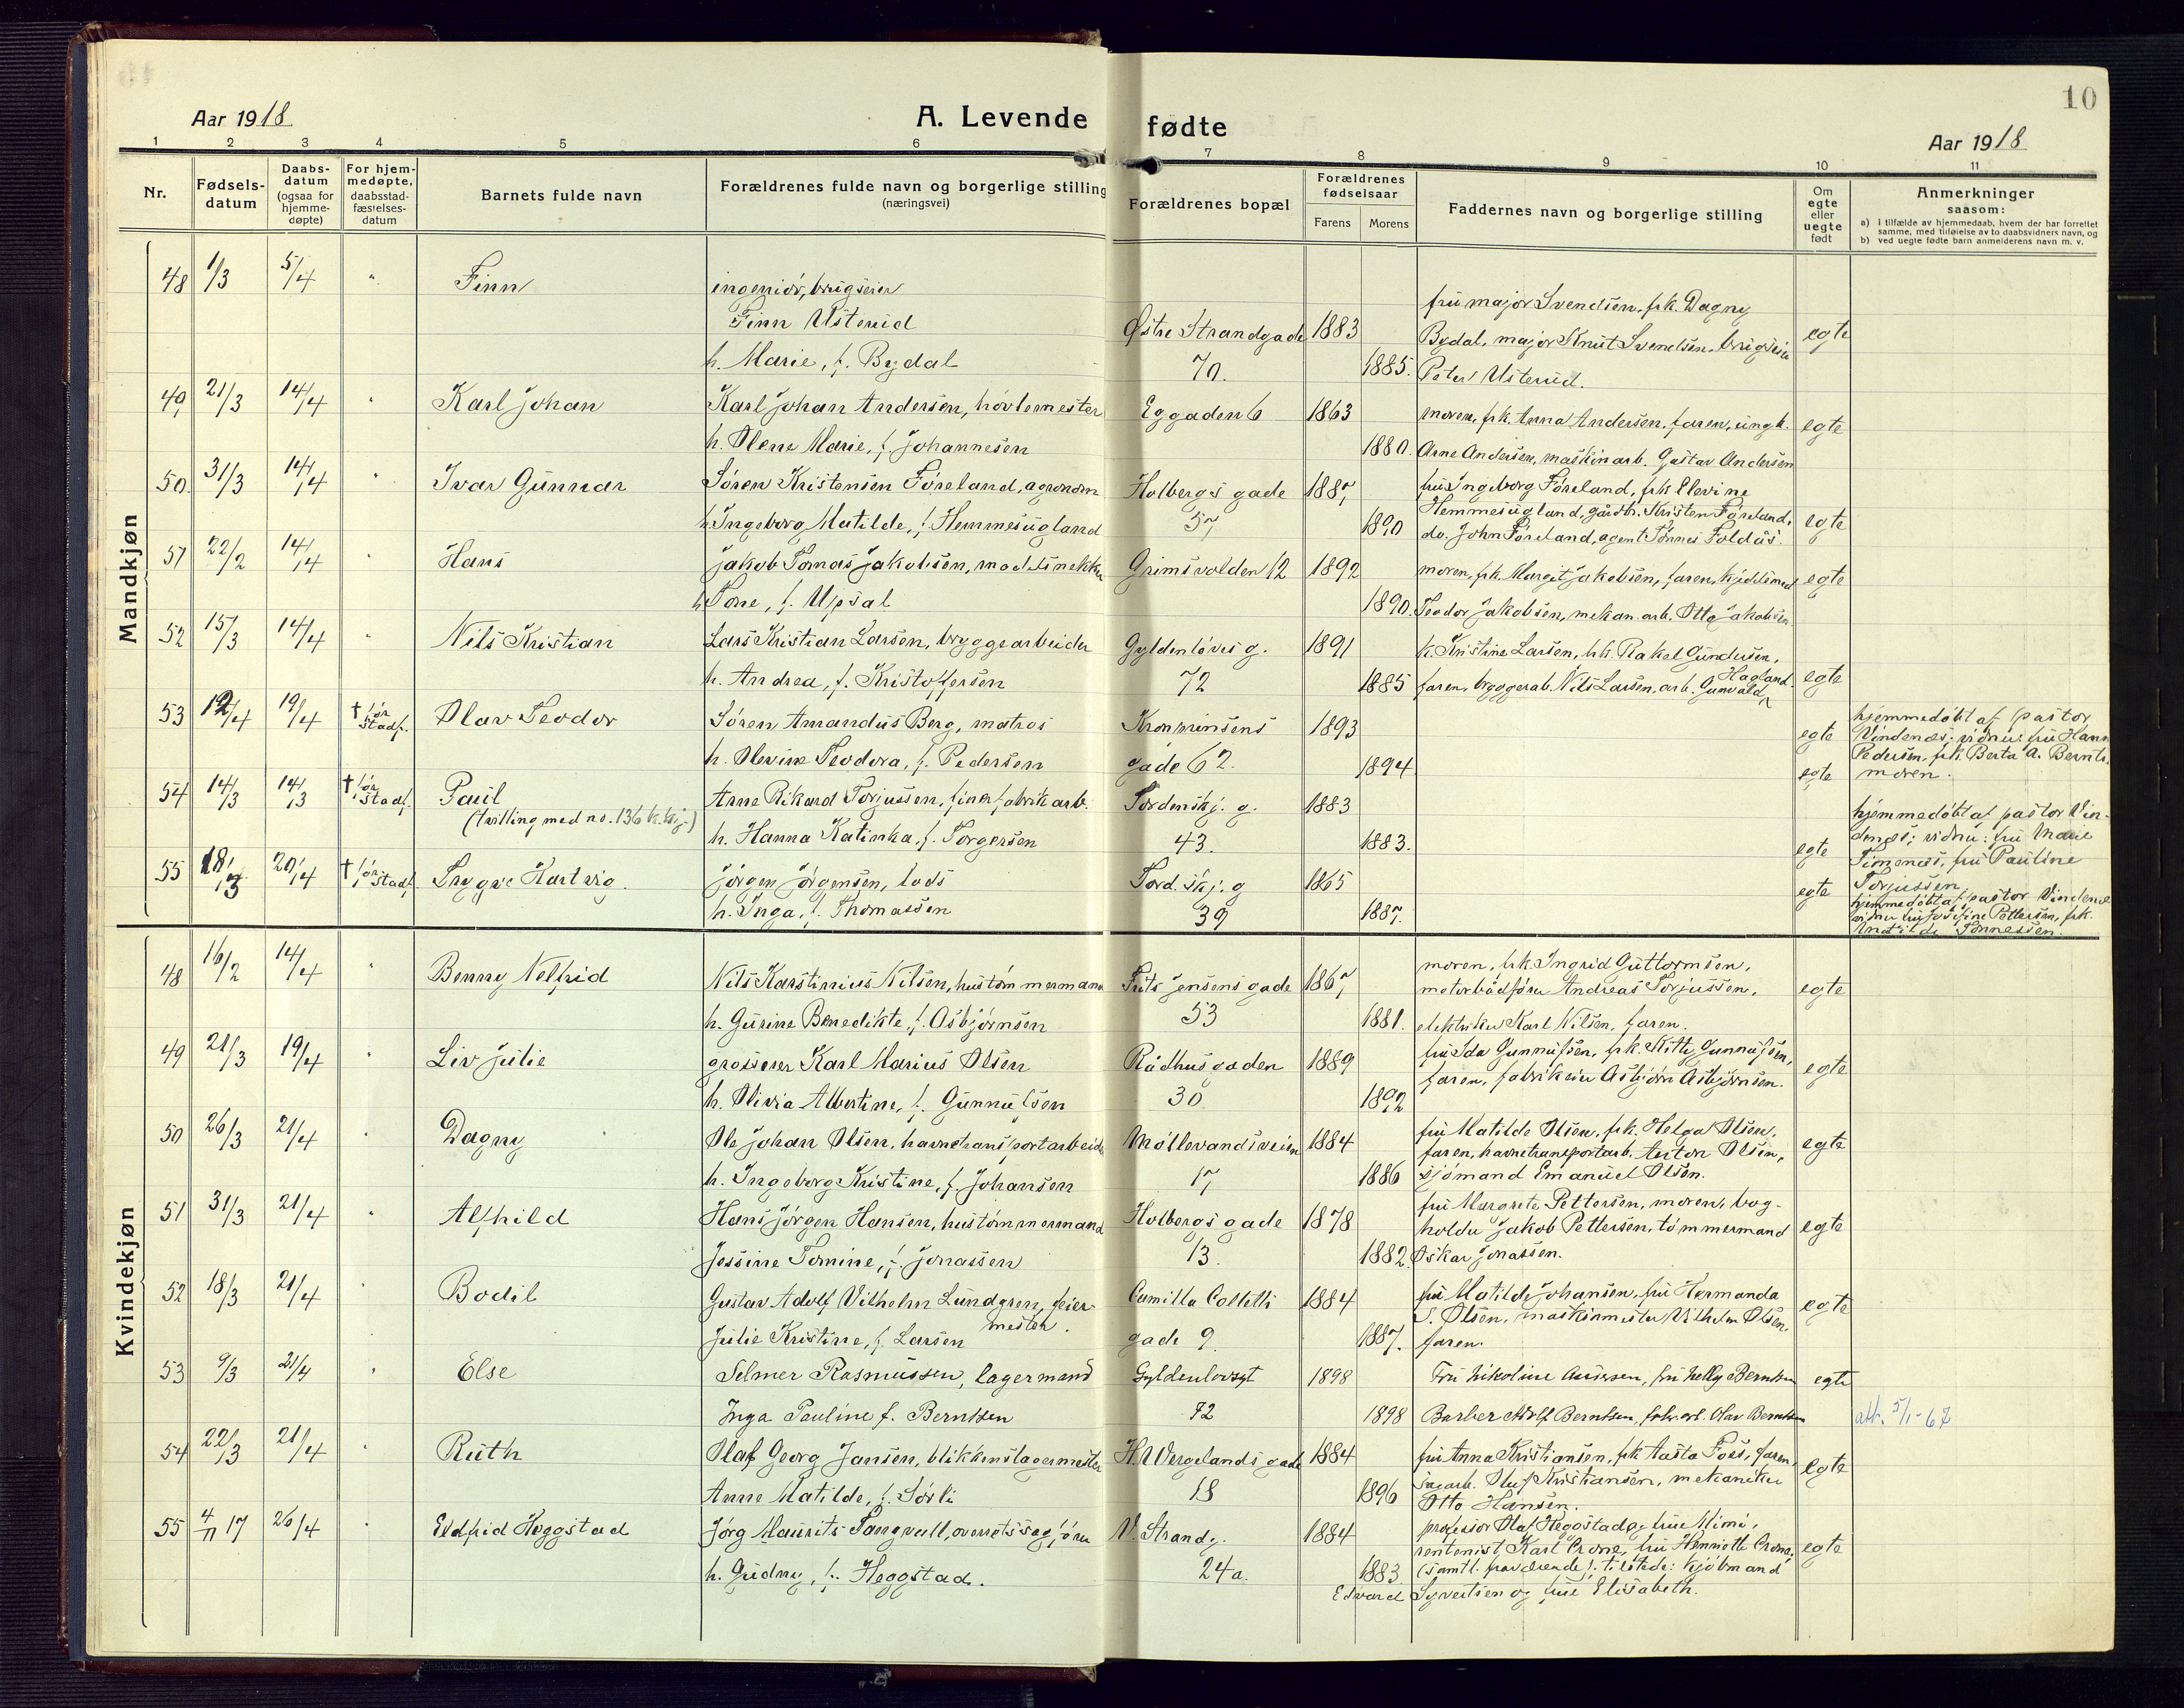 10
Aar 1918 A. Levende fødte Aar 1918
1 2 3 4 5 6 7 8 9 10 11
Nr. Fødsels-datum Daabs-datum (ogsaa for hjemme-døpte) For hjem-medøpte, daabsstad-fæstelses-datum Barnets fulde navn Forældrenes fulde navn og borgerlige stilling (næringsvei) Forældrenes bopæl Forældrenes fødselsaar Farens Morens Faddernes navn og borgerlige stilling Om egte eller uegte født Anmerkninger saasom:
a) i tilfælde av hjemmedaab, hvem der har forrettet samme, med tilføielse av to daabsvidners navn, og
b) ved uegte fødte barn anmelderens navn m. v.
Mandkjøn
48 1/3 5/4 " Finn ingeniør, brugseier
Finn Usterud Østre Strandgade 1883 fru major Svendsen, frk. Dagny
h. Marie, f. Bydal 70. 1885. Bydal, major Knut Svendsen, brugseier egte
Peter Usterud.
49 21/3 14/4 " Karl Johan Karl Johan Andersen, høvlemester Eggaden 6 1863 moren, frk. Anna Andersen, faren, ungk. egte
h. Olene Marie, f. Johannesen 1880. Arne Andersen, maskinarb. Gustav Andersen
50. 31/3 14/4 " Ivar Gunnar Søren Kristensen Føreland, agronom Holbergs gade 1887 fru Ingeborg Føreland, frk Elevine
h. Ingeborg Matilde, f. Hemmesugland 57 1890 Hemmesugland, gårdbr. Kristen Føreland, egte
do. John Føreland, agent Tønnes Foldås.
51 22/2 14/4 " Hans Jakob Tomas Jakobsen, mod.snekker Grimsvolden 12 1892 moren, frk. Margit Jakobsen, faren, kjedelsmed egte
h. Tone, f. Upsal 1890. Teodor Jakobsen, mekan. arb. Otto Jakobsen
52 15/3 14/4 " Nils Kristian Lars Kristian Larsen, bryggearbeider Gyldenløves g. 1891 k. Kristine Larsen, hk. Rakel Gundersen,
h. Andrea, f. Kristoffersen 72 1885 faren, bryggerab. Nils Larsen, arb. Gunvald Hagland. egte
53 12/4 19/4 † før stadf. Olav Teodor Søren Amandus Berg, matros Kronprinsens 1893 egte hjemmedøbt af pastor
h. Olevine Teodora, f. Pedersen gade 62. 1894 Vindenæs; vidner: fru Hann
Pedersen, frk. Berta A. Bernts.
egte moren.
54 14/3 14/3 † før stadf. Paul Arne Rikard Torjussen, finerfabrikarb. Tordenskj. g. 1883 hjemmedøbt af pastor Vin-
(tvilling med no. 136 k.kj.) h. Hanna Katinka, f. Torgersen 43. 1883. egte denæs; vidner: fru Marie
Timenæs, fru Pauline
Torjussen,
55 18/3 20/4 † før stadf. Trygve Hartvig. Jørgen Jørgensen, lods Tord.skj. g 1865 egte hjemmedøbt af pastor Vindenæs
h. Inga, f. Thomassen 39 1887. vidner fru Josefine Pettersen, frk.
Matilde Tønnessen.
Kvindekjøn
48 16/2 14/4 " Benny Nelfrid Nils Karstinius Nilsen, hustømmermand Frits Jensens gade 1867 moren, frk. Ingrid Guttormsen,
motorbådfører Andreas Torjussen, egte
h. Gurine Benedikte, f. Asbjørnsen 53 1881. elektriker Karl Nilsen, faren.
49 21/3 19/4 " Liv Julie grosserer Karl Marius Olsen Rådhusgaden 1889 fru Ida Gunnulfsen, frk. Kitty Gunnulfsen, egte
h. Olivia Albertine, f. Gunnulfsen 30 1892 faren, fabrikeier Asbjørn Asbjørnsen.
50 26/3 21/4 " Dagny Ole Johan Olsen, havnetransportarbeider Møllevandsveien 1884 fru Matilde Olsen, frk. Helga Olsen, egte
faren, havnetransportarb. Anton Olsen,
h. Ingeborg Kristine, f. Johansen 17 1886 sjømand Emanuel Olsen.
51 31/3 21/4 " Alfhild Hans Jørgen Hansen, hustømmermand Holbergs gade 1878 fru Margrete Pettersen, moren, bog-
holder Jakob Pettersen, tømmermand egte
Jossine Tomine, f. Jonassen 13. 1882. Oskar Jonassen.
52 18/3 21/4 " Bodil Gustav Adolf Vilhelm Lundgren, feier-mester. Camilla Colletts 1884 fru Matilde Johansen, fru Hermanda egte
S. Olsen, maskinmester Vilhelm Olsen,
Julie Kristine, f. Larsen gade 9 1887. faren.
53 9/3 21/4 " Else Selmer Rasmussen, lagermand Gyldenlovsgt 1898 Fru Nikoline Andersen, fru Nelly Berntsen egte
Inga Pauline f. Berntsen 72 1898 Barber Adolf Berntsen, fabr.arb. Olav Berntsen att. 5/1-67
54 22/3 21/4 " Ruth Olaf Georg Jansen, blikkenslagermester H. Wergelands gade 1884 fru Anna Kristiansen, frk Aasta Foss, faren, egte
Anne Matilde, f. Sørli 18 1896 Oluf Kristiansen, mekaniker
Otto Hansen.
55 4/11 17 26/4 " Eldfrid Heggstad Jørg Maurits Langvall, overretssagfører V. Strandg. 1884 professor Olaf Heggstad og frue Mimi,
rentenist Karl Crone, fru Henriette Crone, egte
h. Gudny, f. Heggstad. 24a. 1883 (samtl. fraværende). tilstede: kjøbmand
Edvard Syvertsen og frue Elisabeth.